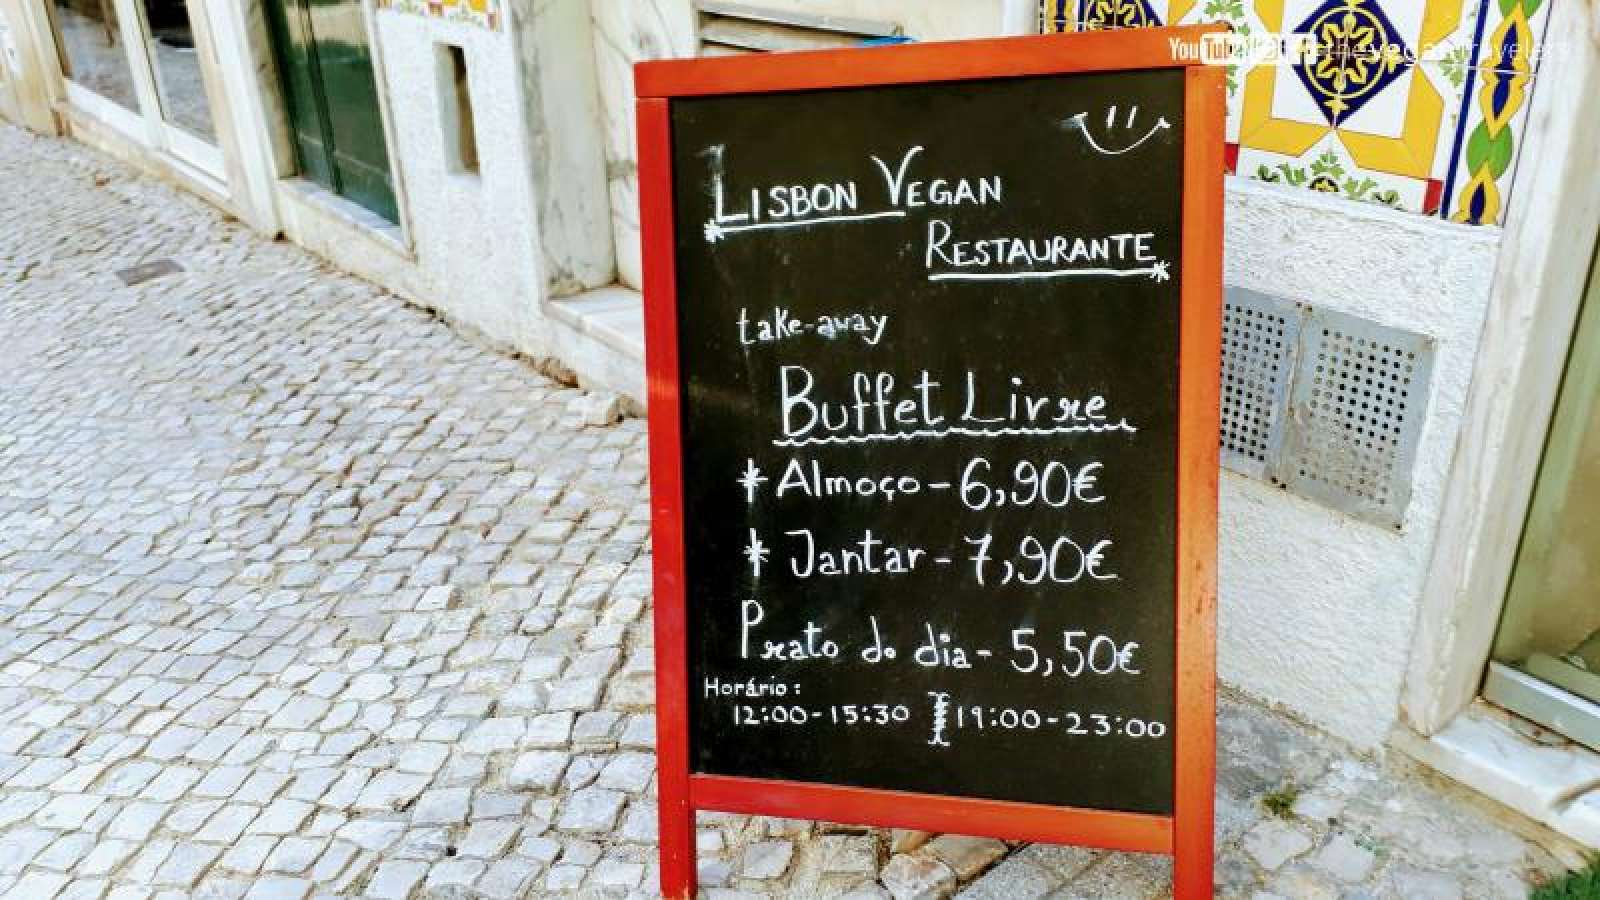 LISBON VEGAN
RESTAURANTE
take-away
Buffet Livre
* Almoço - 6,90€
* Jantar - 7,90€
Prato do dia - 5,50€
Horário:
12:00-15:30 19:00-23:00
YouTube